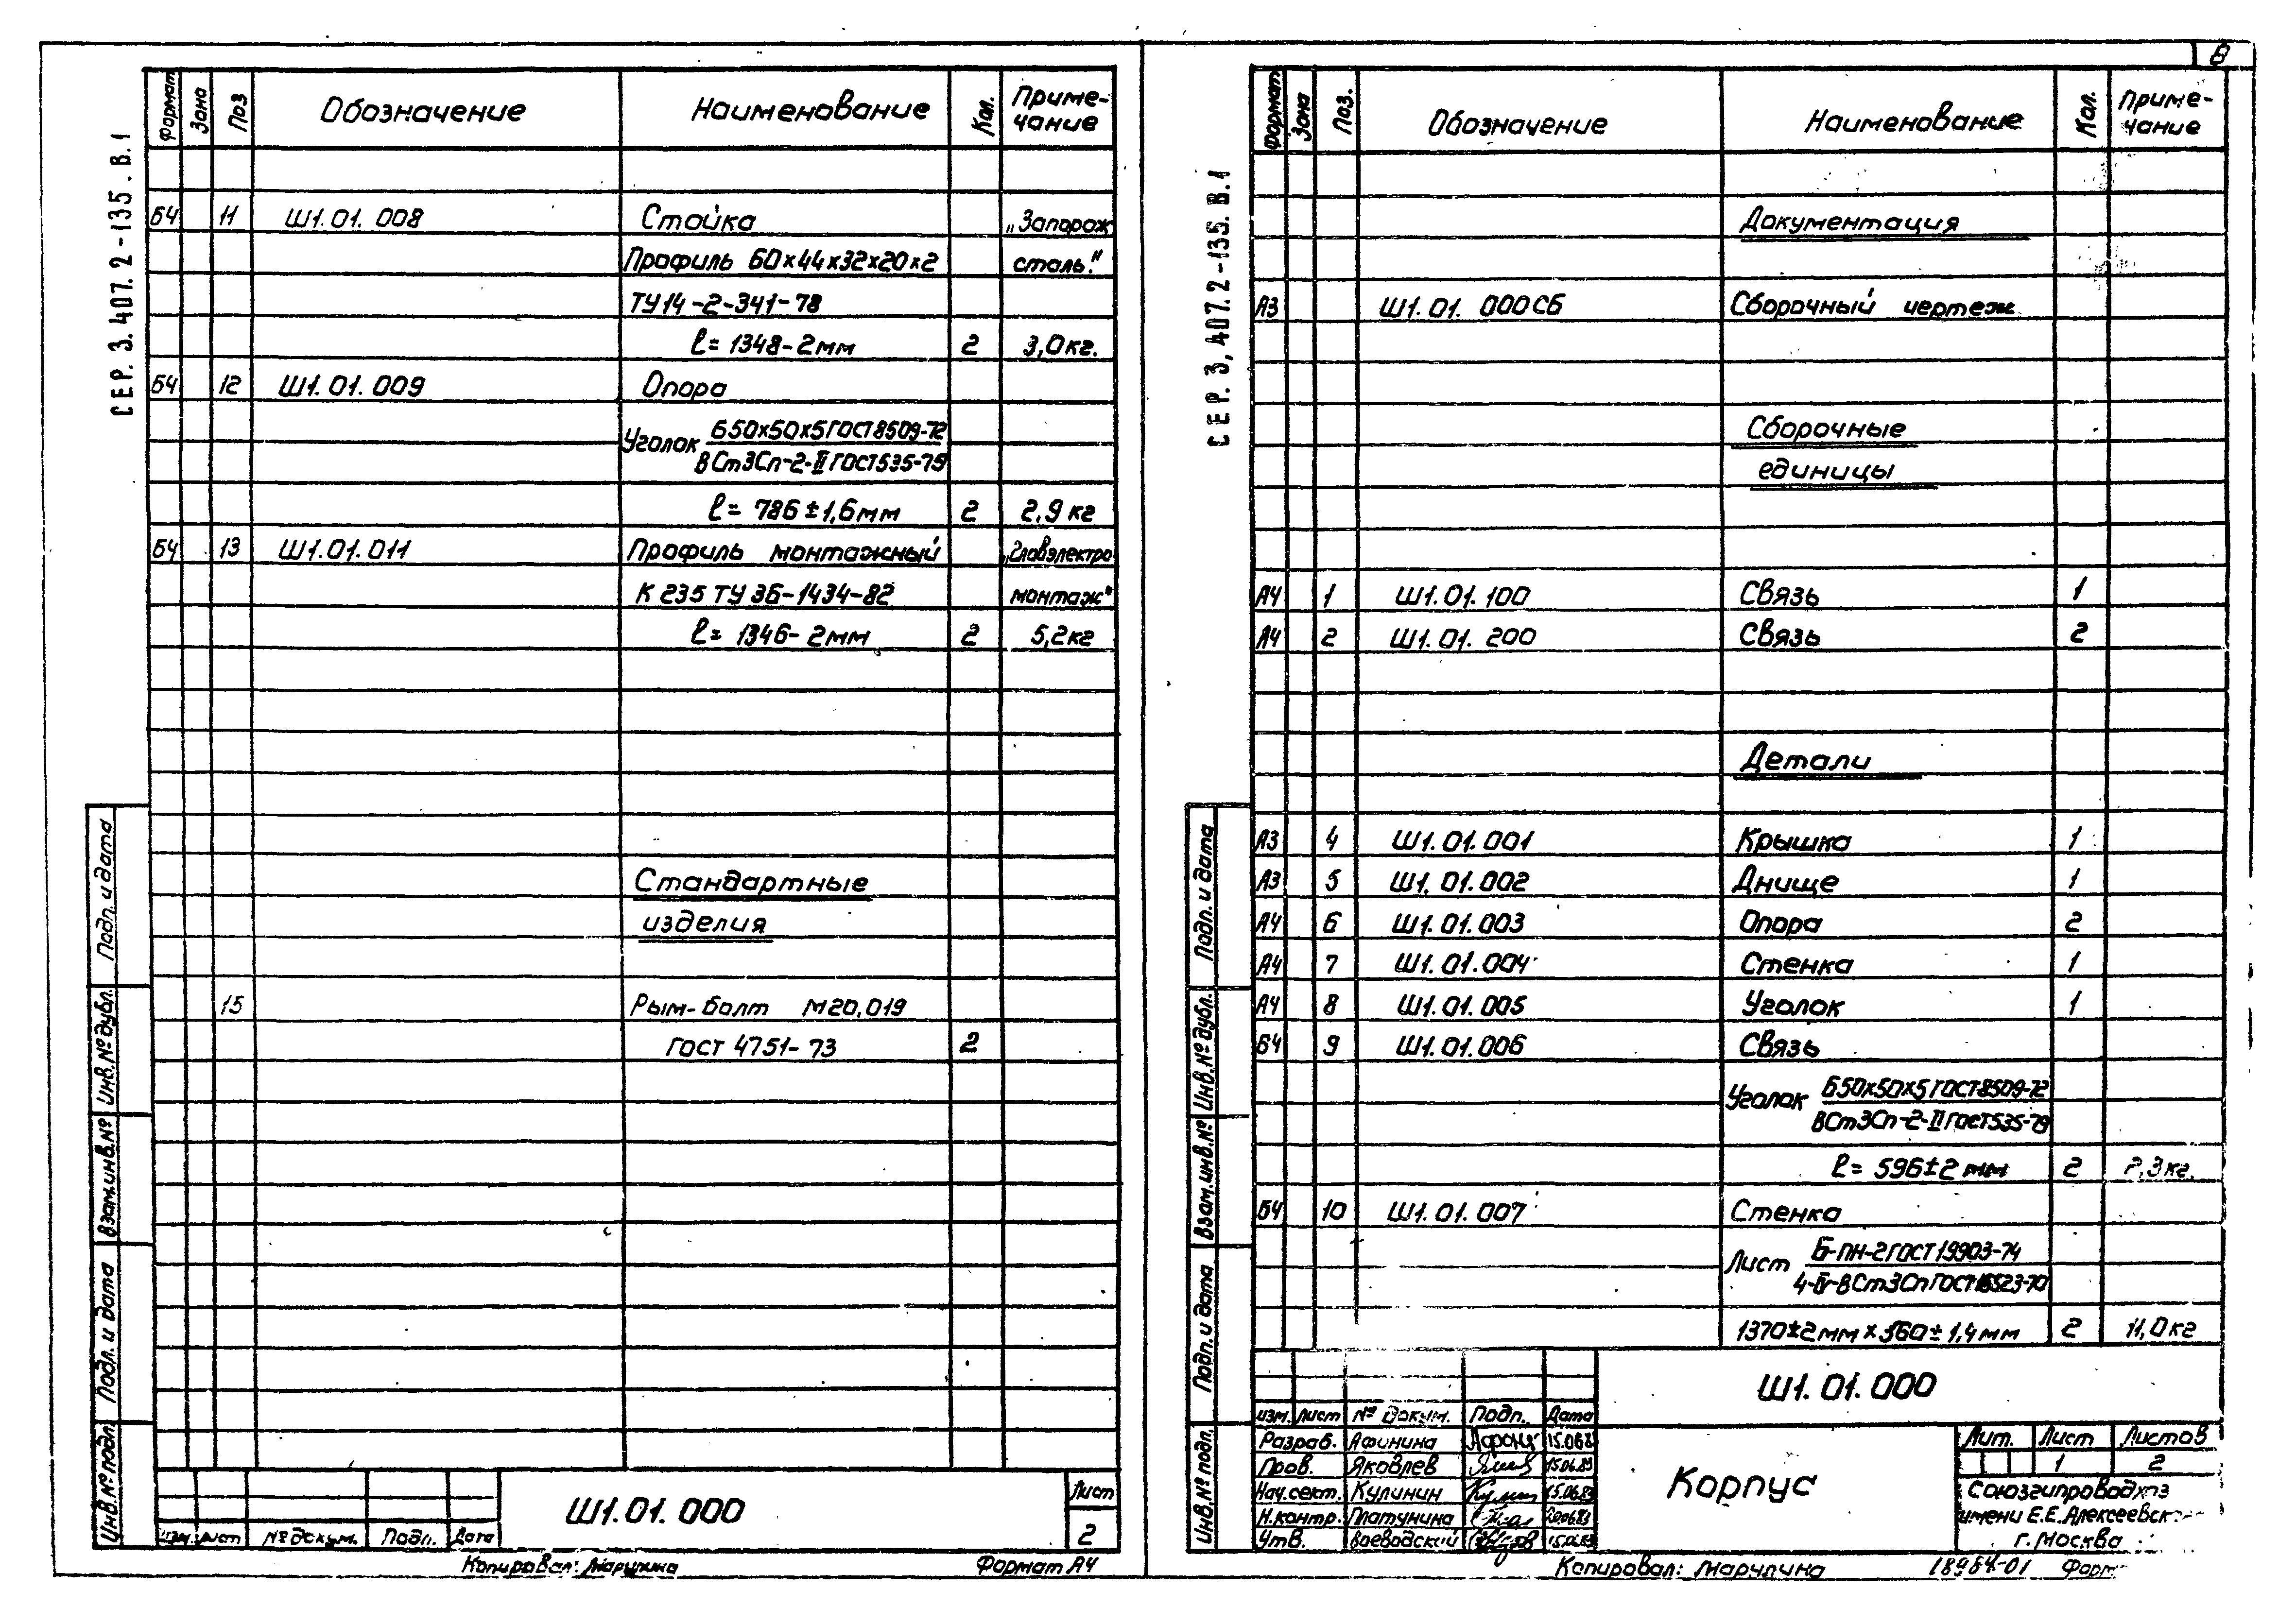 8
СЕР. 3.407.2-135.В.1
Формат Зона Поз Обозначение Наименование Кол. Приме-
чание
БЧ 11 Ш1.01.008 Стойка „Запорож
Профиль 60х44х32х20х2 сталь."
ТУ14-2-341-78
ℓ= 1348-2мм 2 3,0кг.
БЧ 12 Ш1.01.009 Опора
Уголок Б50х50х5ГОСТ8509-72
ВСт3Сп-2-II ГОСТ535-79
ℓ= 786±1,6мм 2 2,9кг
БЧ 13 Ш1.01.011 Профиль монтажный „Главэлектро
К 235 ТУ 36-1434-82 монтаж"
ℓ= 1346-2мм 2 5,2кг
Стандартные
изделия
15 Рым-болт М20.019
ГОСТ 4751-73 2
Подп. и дата
Инв.№дубл.
Взам.инв.№
Подп. и дата
Инв.№подл.
Изм. Лист №докум. Подп. Дата
Ш1.01.000
Лист
2
Копировал: Марулина Формат А4
СЕР. 3.407.2-135.В.1
Формат Зона Поз. Обозначение Наименование Кол. Приме-
чание
Документация
А3 Ш1.01.000СБ Сборочный чертеж
Сборочные
единицы
А4 1 Ш1.01.100 Связь 1
А4 2 Ш1.01.200 Связь 2
Детали
А3 4 Ш1.01.001 Крышка 1
А3 5 Ш1.01.002 Днище 1
А4 6 Ш1.01.003 Опора 2
А4 7 Ш1.01.004 Стенка 1
А4 8 Ш1.01.005 Уголок 1
БЧ 9 Ш1.01.006 Связь
Уголок Б50х50х5ГОСТ8509-72
ВСт3Сп-2-II ГОСТ535-79
ℓ= 596±2мм 2 2,3кг.
БЧ 10 Ш1.01.007 Стенка
Лист Б-ПН-2ГОСТ19903-74
4-IV-ВСт3СпГОСТ16523-70
1370±2мм х 360±1,4мм 2 11,0кг
Подп. и дата
Инв.№дубл.
Взам.инв.№
Подп. и дата
Инв.№подл.
Ш1.01.000
Изм. Лист № докум. Подп. Дата
Разраб. Афинина 15.068
Пров. Яковлев 15.06.83
Нач.сект. Кулинин 15.06.83
Н.контр. Платунина 20.06.83
Утв. Воеводский 15.06.83
Корпус
Лит. Лист Листов
1 2
Союзгипроводхоз
имени Е.Е.Алексеевск
г. Москва
Копировал: Марулина 18984-01 Форм